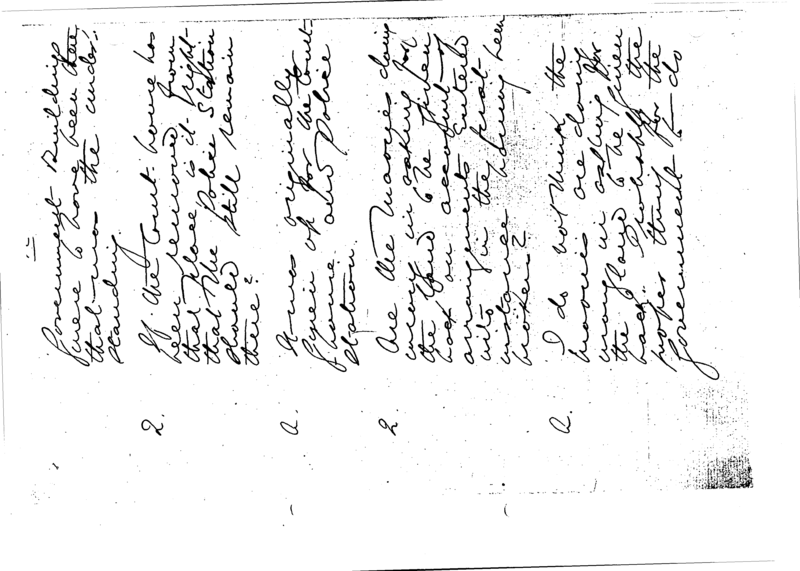 Government Buildings
were to have been there,
that was the under-
standing.
Q. If the Court house has
been removed from
that place is it right
that the Police Station
should still remain
there?
A. It was originally
given up for the Court
house and Police
Station.
Q. Are the Maories doing
wrong in asking for
the land to be given
back on account of
arrangements entered
into in the first
instance having been
broken?
A. I do not think the
Maories are doing
wrong in asking for
the land to be given
back. Probably the
proper thing for the
Government to do